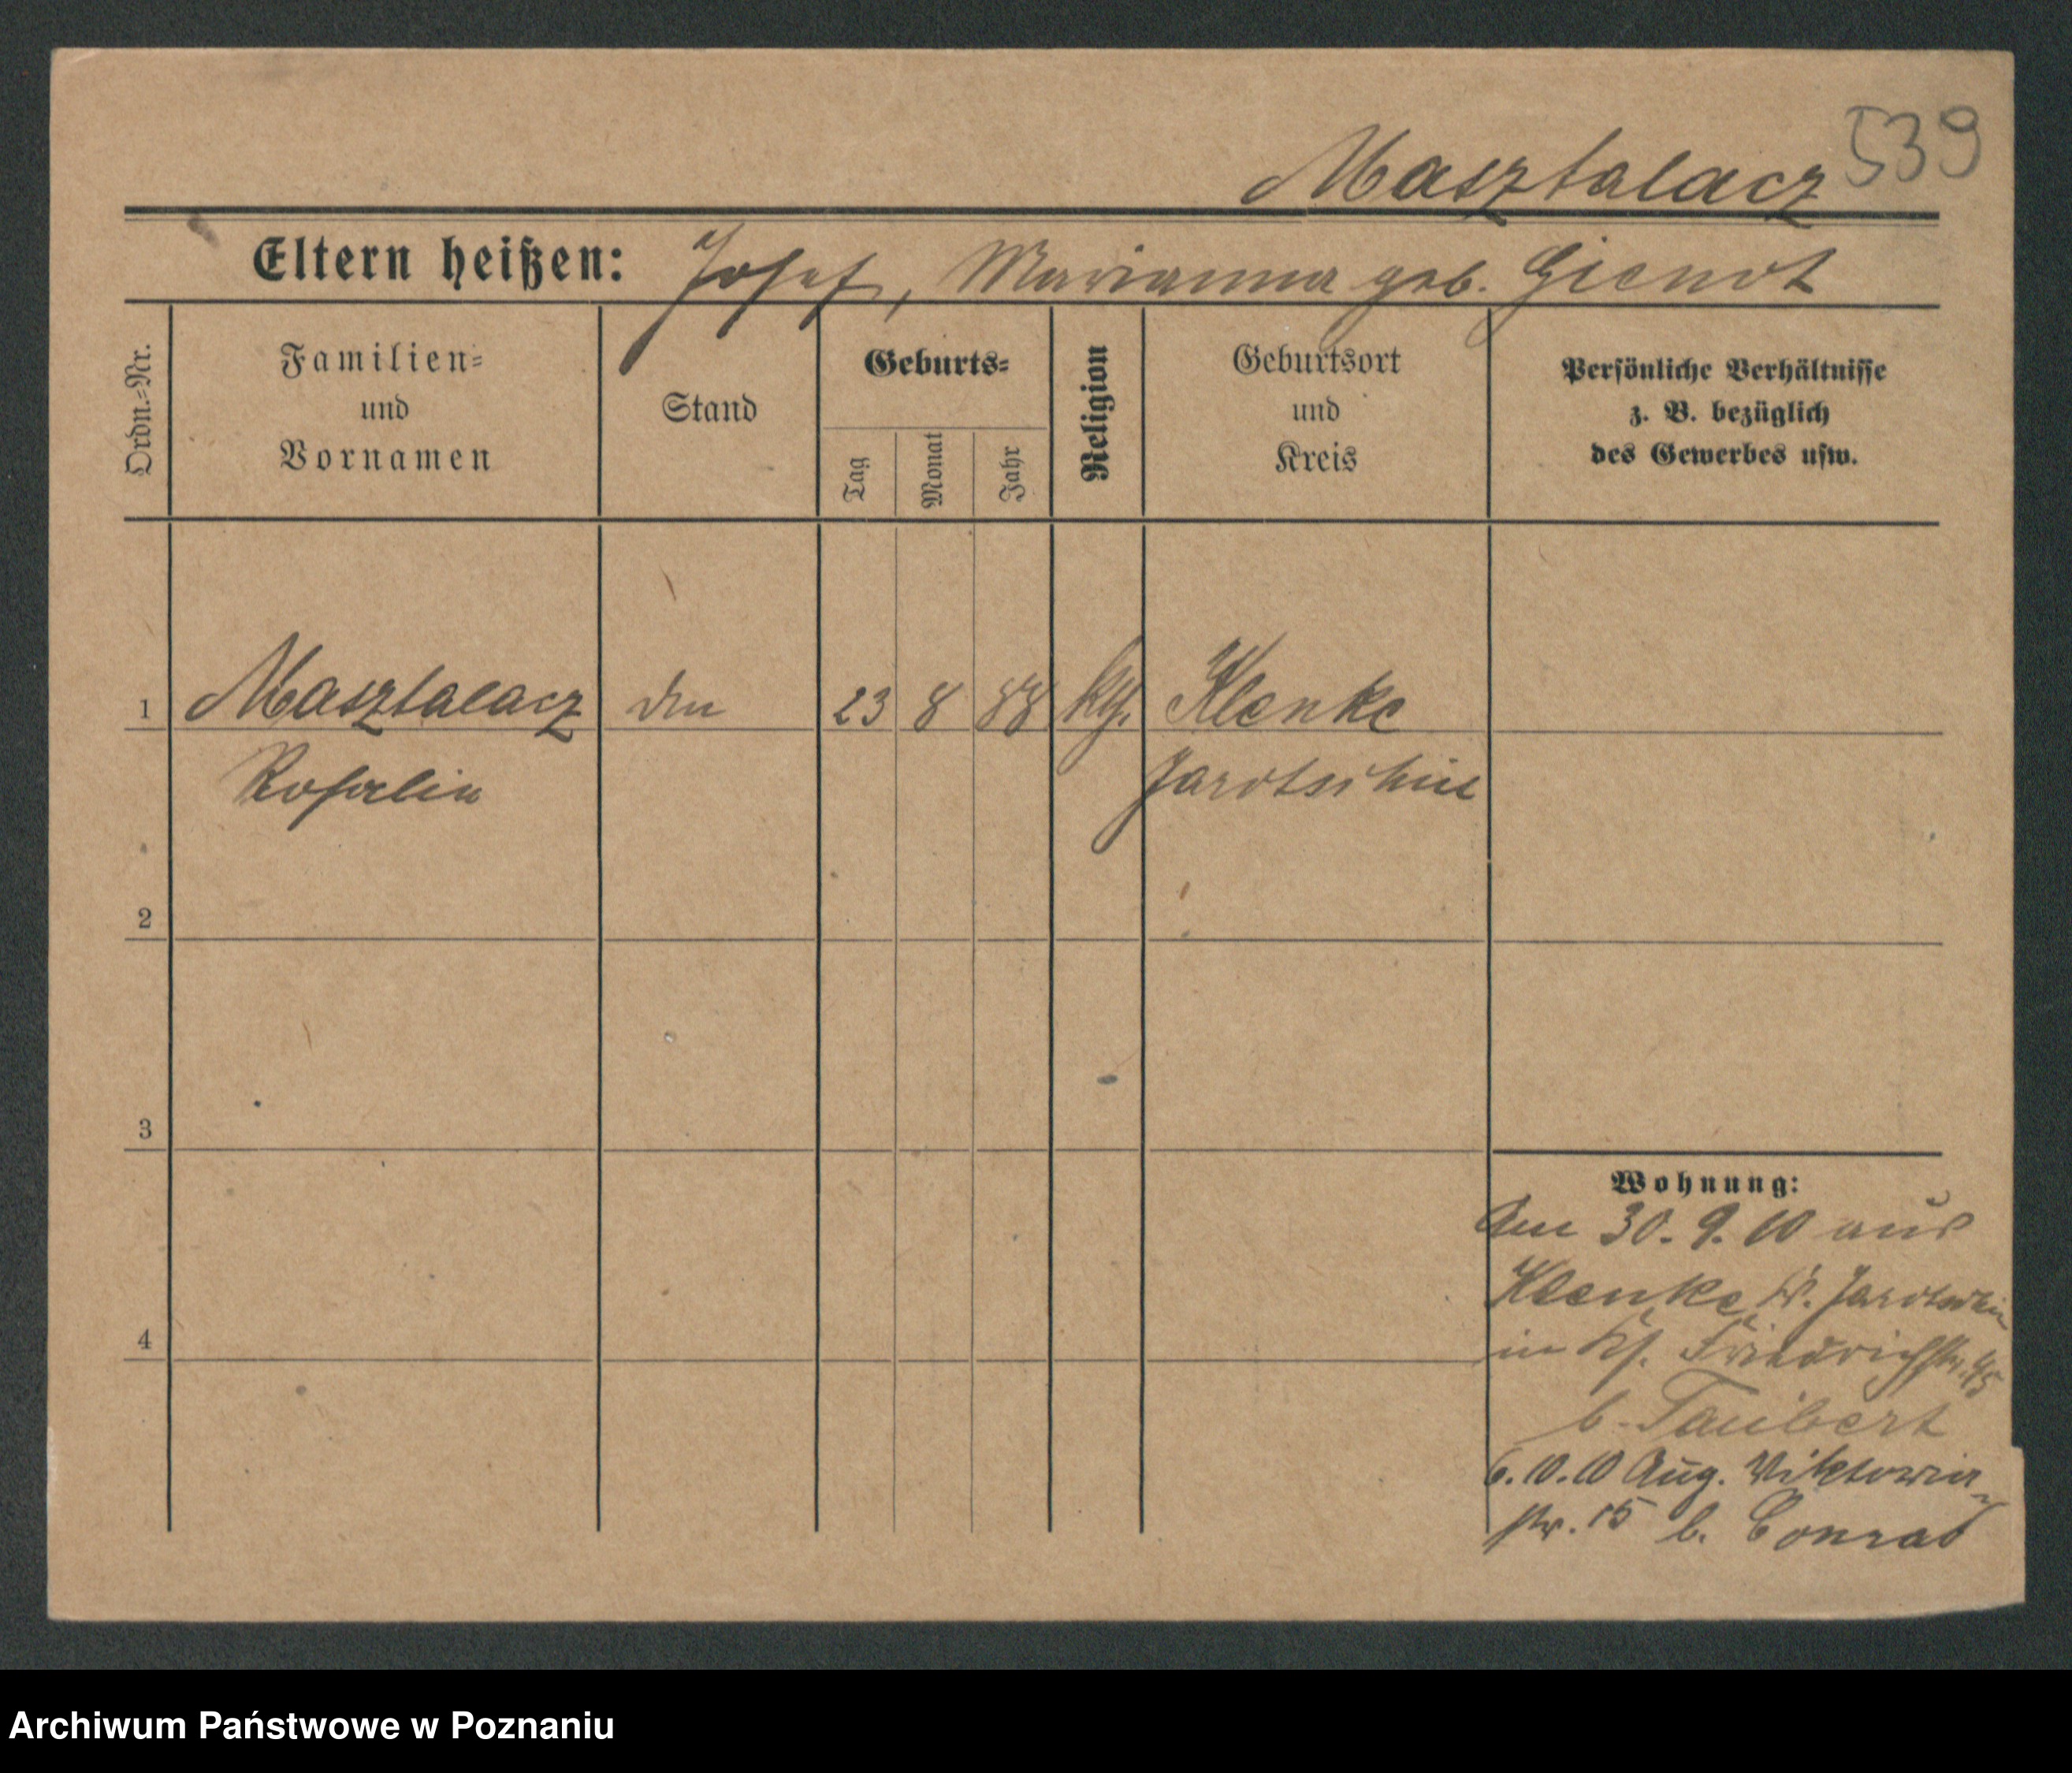 539
Masztalacz
Eltern heißen: Josef, Marianna geb. Gienot
Ordn.-Nr.
Familien-
und
Vornamen
Stand
Geburts-
Tag
Monat
Jahr
Religion
Geburtsort
und
Kreis
Persönliche Verhältnisse
z. B. bezüglich
des Gewerbes usw.
1 Masztalacz 23 8 88 kth. Klenke
Rosalie Jarotschin
2
3
4
Wohnung:
Am 30. 9. 10 aus
Klenke, Kr. Jarotschin
in Friedrichstr. 45
b. Taubert
6. 10. 10 Aug. Viktoria-
str. 15 b. Conrad
Archiwum Państwowe w Poznaniu